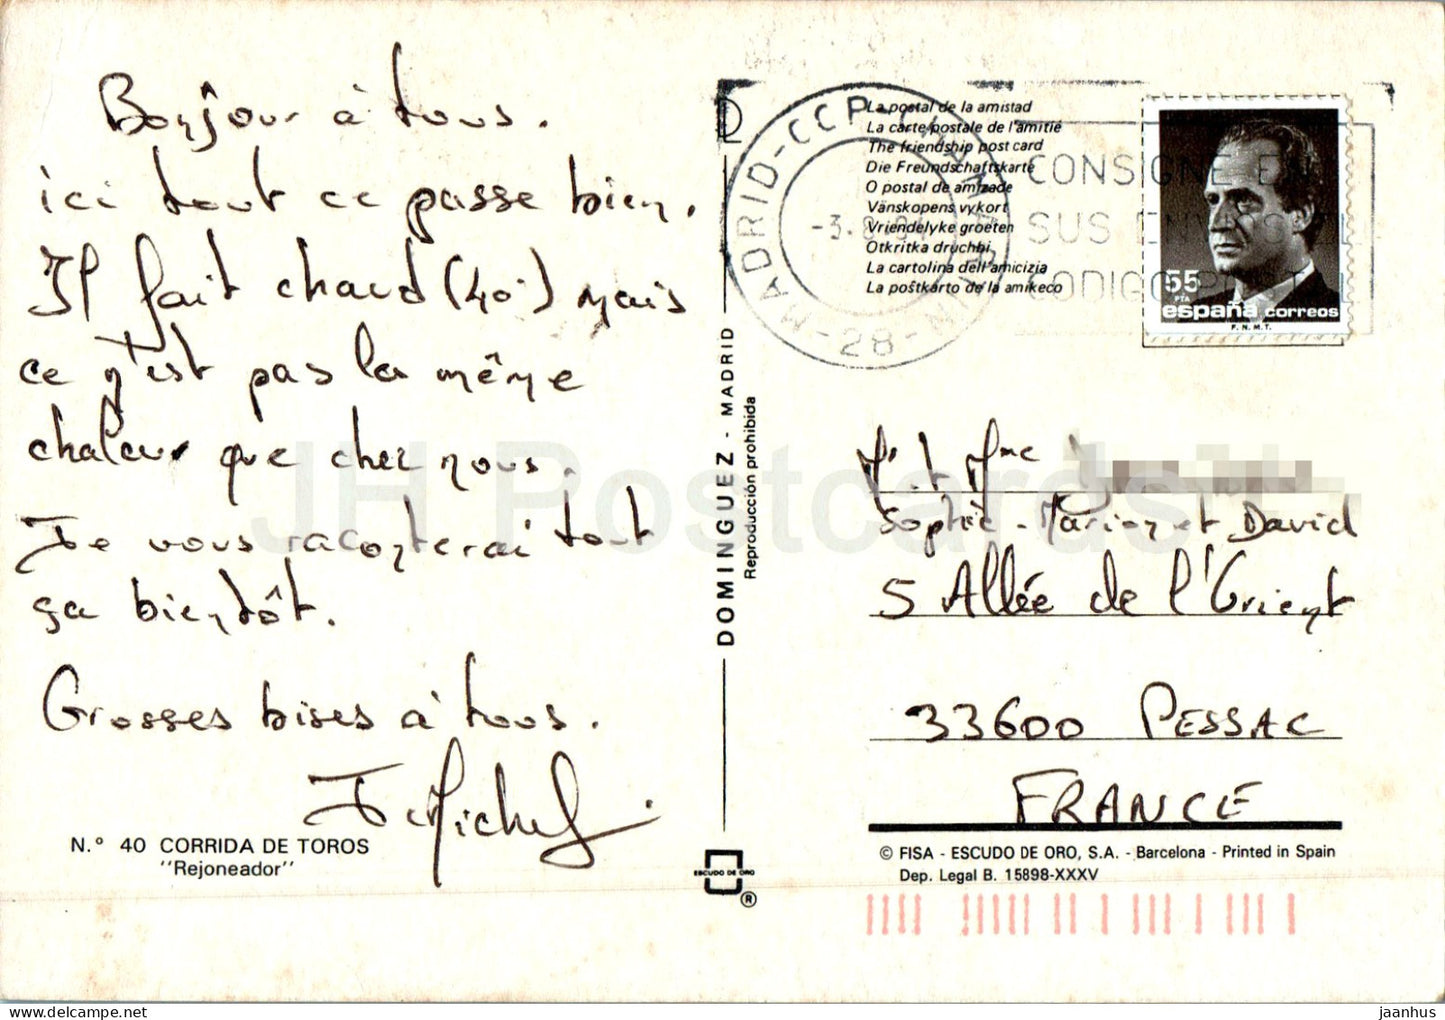 Bonjour à tous.
ici tout ce passe bien.
Il fait chaud (40°) mais
ce n'est pas la même
chaleur que chez nous.
Je vous raconterai tout
ça bientôt.
Grosses bises à tous.
Michel
N.° 40 CORRIDA DE TOROS
"Rejoneador"
DOMINGUEZ - MADRID
Reproducción prohibida
ESCUDO DE ORO
®
La postal de la amistad
La carte postale de l'amitié
The friendship post card
Die Freundschaftskarte
O postal de amizade
Vänskopens vykort
Vriendelyke groeten
Otkritka druchbi
La cartolina dell'amicizia
La poŝtkarto de la amikeco
MADRID-CCP-CHAMARTIN
-28-
CONSIGNE EN
SUS ENVIOS EL
CODIGO POSTAL
55
PTA
españa correos
F.N.M.T.
Mr et Mme
Sophie - Marion et David
5 Allée de l'Orient
33600 PESSAC
FRANCE
© FISA - ESCUDO DE ORO, S.A. - Barcelona - Printed in Spain
Dep. Legal B. 15898-XXXV
JH Postcards
jaanhus